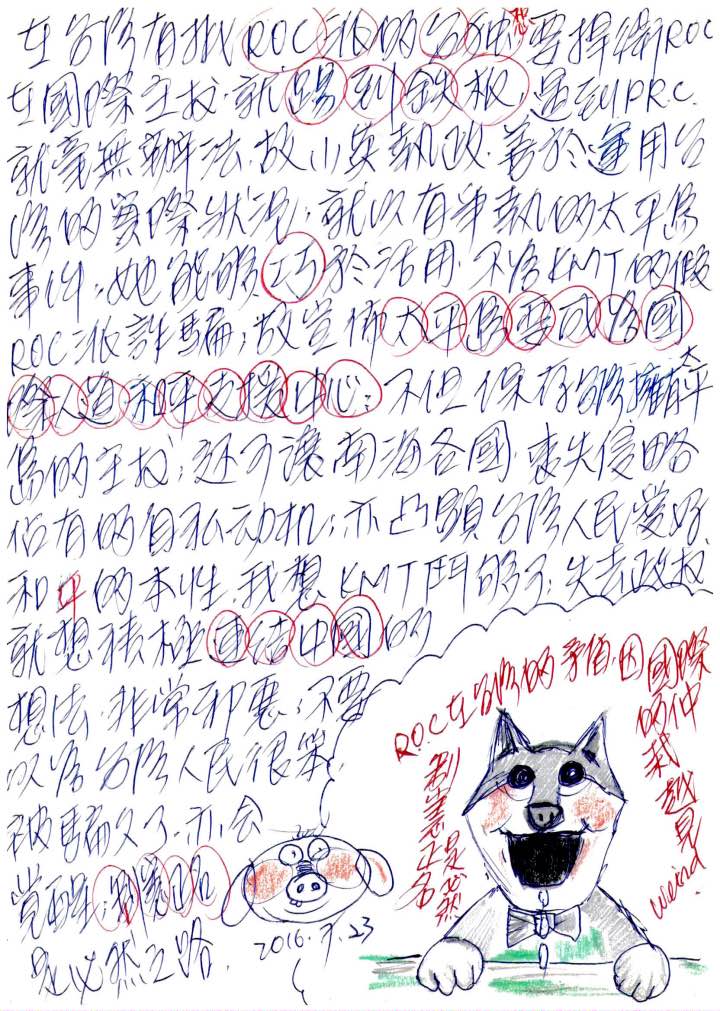 在台灣有批ROC派的台独想要捍衛ROC
在國際主权,就踢到鉄板,遇到PRC
就毫無辦法,故小英執政,善於運用台
灣的實際狀況,就以有爭執的太平島
事件,她能夠巧於活用,不為KMT的假
ROC派詐騙,故宣佈太平島要成為國
際人道和平支援中心,不但保存台灣擁有太平
島的主权,还可讓南海各國喪失侵略
佔有的自私动机,亦凸顯台灣人民愛好
和平的本性,我想KMT鬥夠了,失去政权
就想積極連結中國的
想法,非常邪惡,不要
以為台灣人民很笨,
被騙久了,亦会
覺醒,制憲正名
是必然之路.
2016.7.23
ROC在台灣的矛盾,因國際
的仲裁越見
weird
制憲正名
是必然